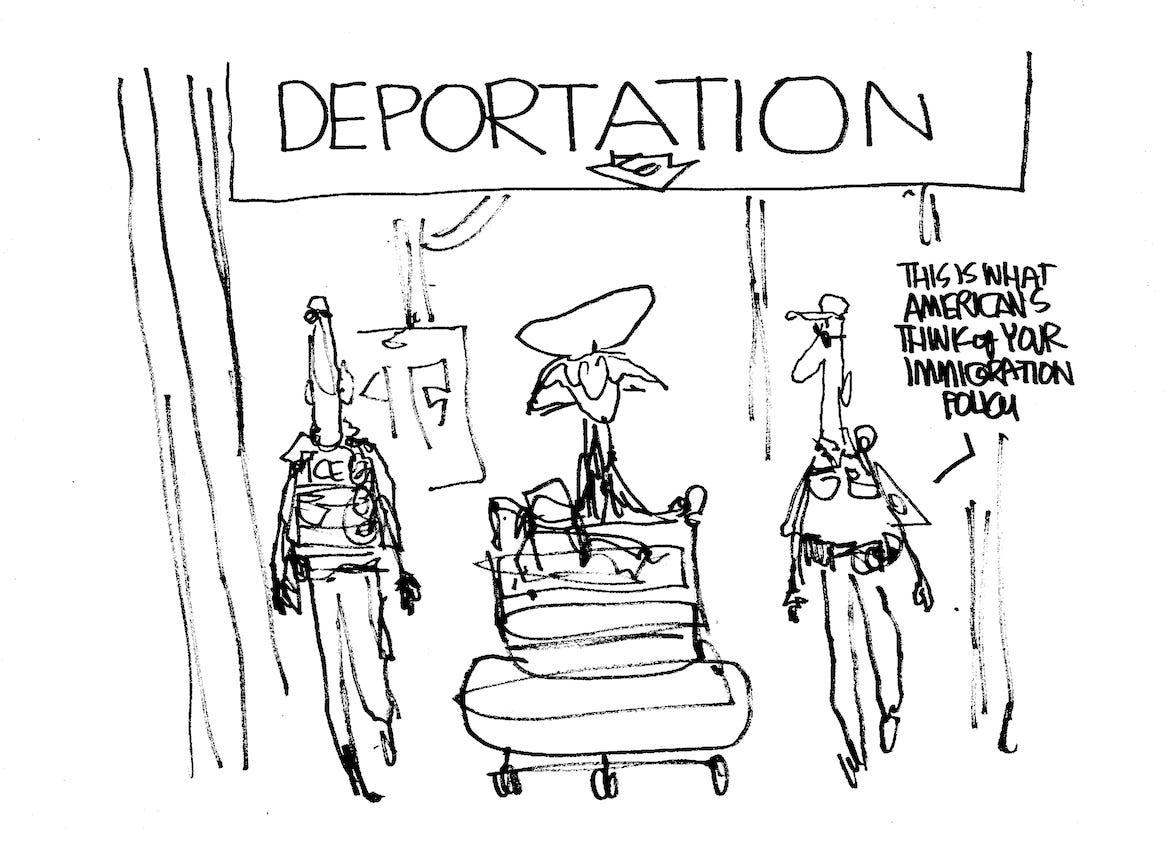 DEPORTATION
THIS IS WHAT
AMERICANS
THINK of YOUR
IMMIGRATION
POLICY
ICE